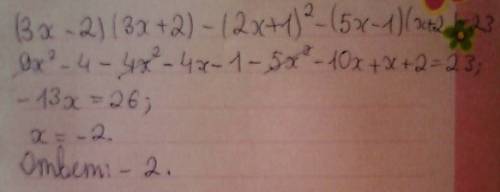 (3x-2)(3x+2)-(2x+1)²-(5x-1)(x+2)=23
9x²-4-4x²-4x-1-5x²-10x+x+2=23;
-13x=26;
x=-2.
Ответ: -2.